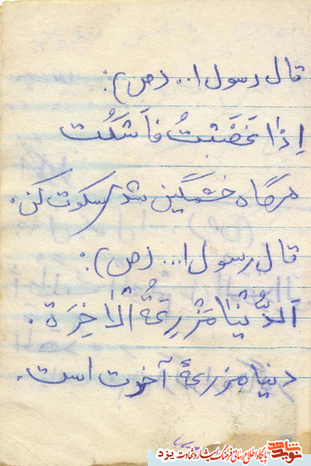 قال رسول ا... (ص):
اِذٰا غَضَبْتُ فَاَسْکُت
هرگاه خشمگین شد سکوت کن.
قال رسول ا... (ص):
اَلدُّنْیٰا مَزْرِعَةُ الْاٰخِرَة.
دنیا مزرعهٔ آخرت است.
نوید شاهد پایگاه اطلاع رسانی فرهنگ ایثار و شهادت یزد